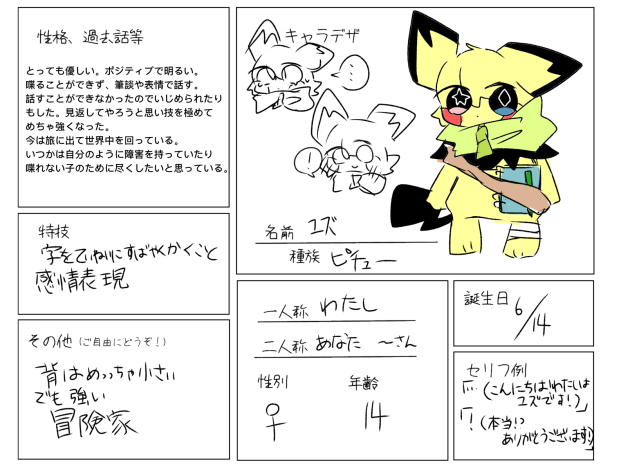 性格、過去話等
とっても優しい。ポジティブで明るい。
喋ることができず、筆談や表情で話す。
話すことができなかったのでいじめられたり
もした。見返してやろうと思い技を極めて
めちゃ強くなった。
今は旅に出て世界中を回っている。
いつかは自分のように障害を持っていたり
喋れない子のために尽くしたいと思っている。
キャラデザ
…
!
名前 ユズ
種族 ピチュー
特技
字をていねいにすばやくかくこと
感情表現
その他 (ご自由にどうぞ!)
背はめっちゃ小さい
でも強い
冒険家
一人称 わたし
二人称 あなた 〜さん
性別 年齢
♀ 14
誕生日 6/14
セリフ例
「…(こんにちは!わたしは
ユズです!)」
「!(本当!?
ありがとうございます!)」